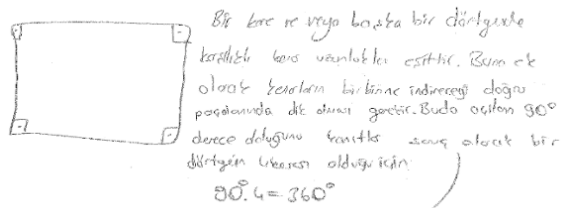 Bir kare ve veya başka bir dörtgende
karşılıklı kenar uzunlukları eşittir. Buna ek
olarak kenarların birbirine indireceği doğru
parçalarında dik olması gerekir. Buda açıları 90°
derece olduğunu kanıtlar sonuç olarak bir
dörtgen olduğu için
90°.4=360°